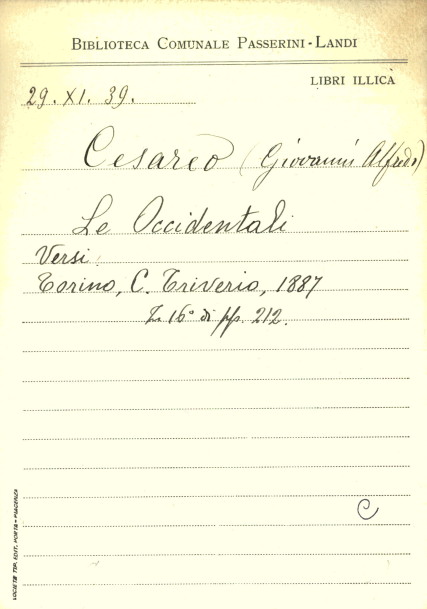 BIBLIOTECA COMUNALE PASSERINI-LANDI
LIBRI ILLICA
29. XI. 39.
Cesareo (Giovanni Alfredo)
Le Occidentali
Versi
Torino, C. Triverio, 1887
In 16° di pp. 212.
C
SOCIETÀ TIP. EDIT. PORTA - PIACENZA